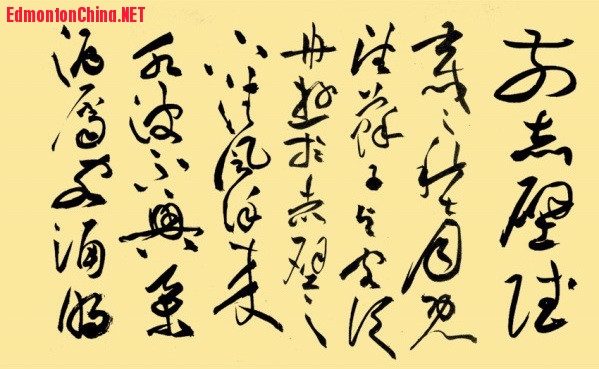 EdmontonChina.NET
前赤壁賦
壬戌之秋七月既
望蘇子與客泛
舟遊於赤壁之
下清風徐來
水波不興舉
酒屬客誦明